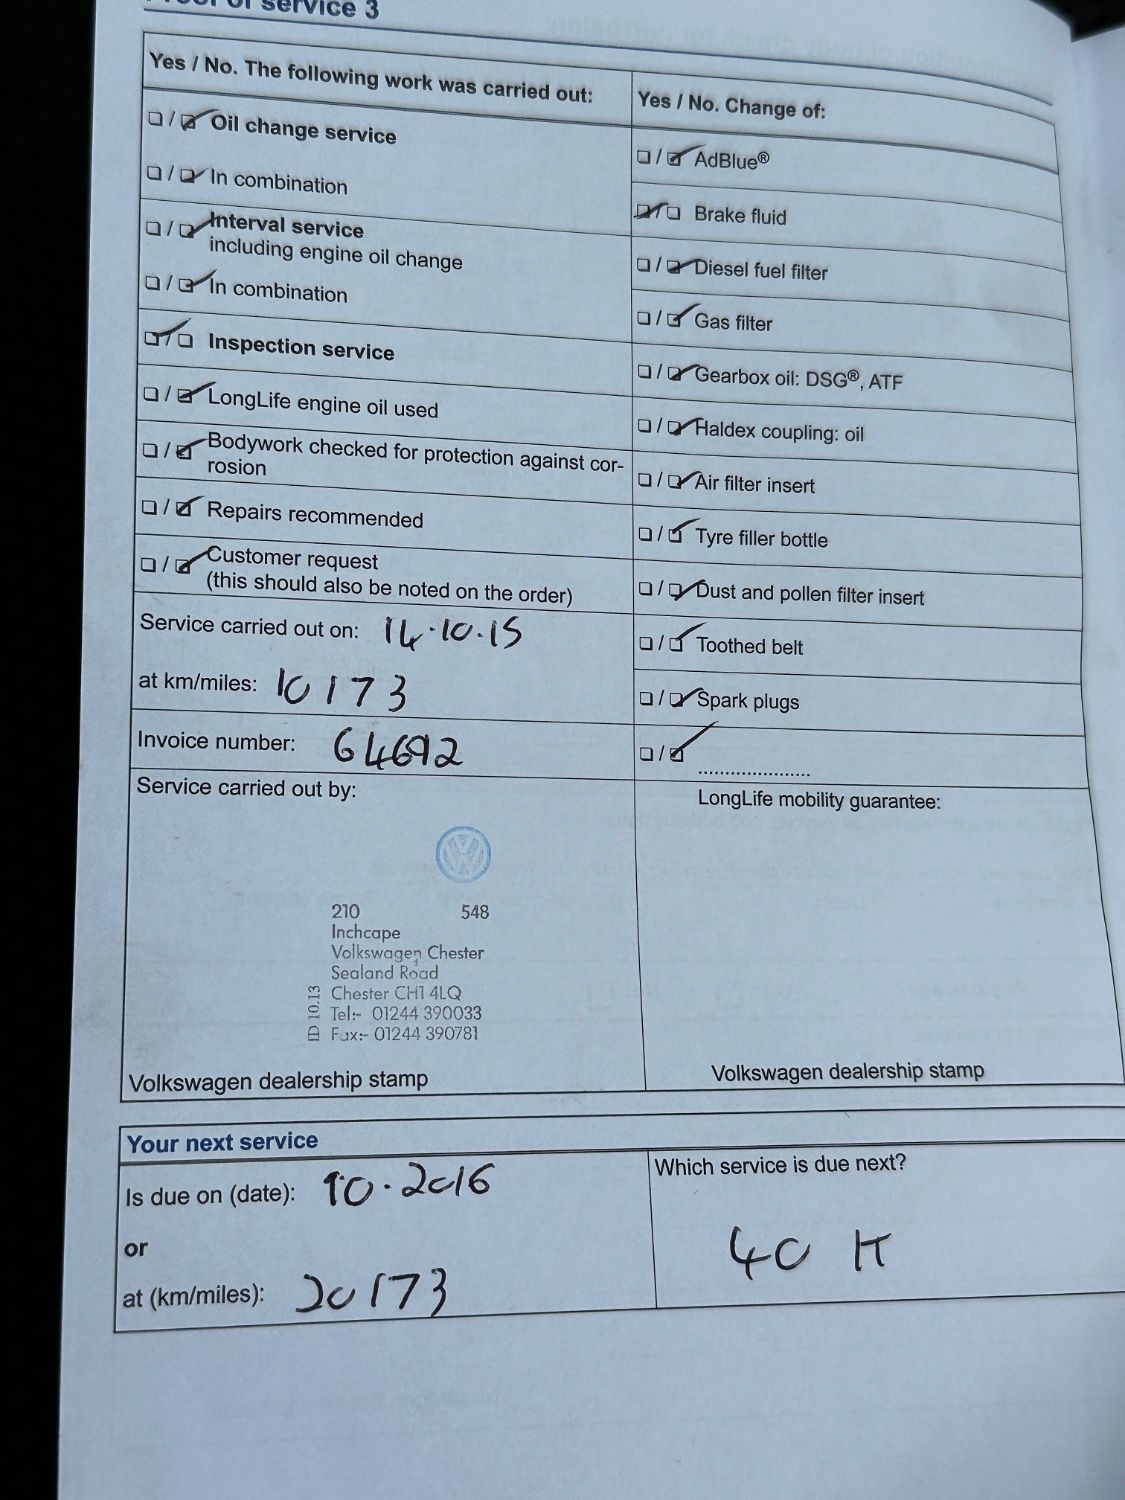 Proof of service 3
Yes / No. The following work was carried out:
Oil change service
In combination
Interval service
including engine oil change
In combination
Inspection service
LongLife engine oil used
Bodywork checked for protection against cor-
rosion
Repairs recommended
Customer request
(this should also be noted on the order)
Service carried out on: 14.10.15
at km/miles: 10173
Invoice number: 64692
Service carried out by:
210 548
Inchcape
Volkswagen Chester
Sealand Road
Chester CH1 4LQ
Tel:- 01244 390033
Fax:- 01244 390781
ED 10.13
Volkswagen dealership stamp
Yes / No. Change of:
AdBlue®
Brake fluid
Diesel fuel filter
Gas filter
Gearbox oil: DSG®, ATF
Haldex coupling: oil
Air filter insert
Tyre filler bottle
Dust and pollen filter insert
Toothed belt
Spark plugs
LongLife mobility guarantee:
Volkswagen dealership stamp
Your next service
Is due on (date): 10.2016
or
at (km/miles): 20173
Which service is due next?
40 K